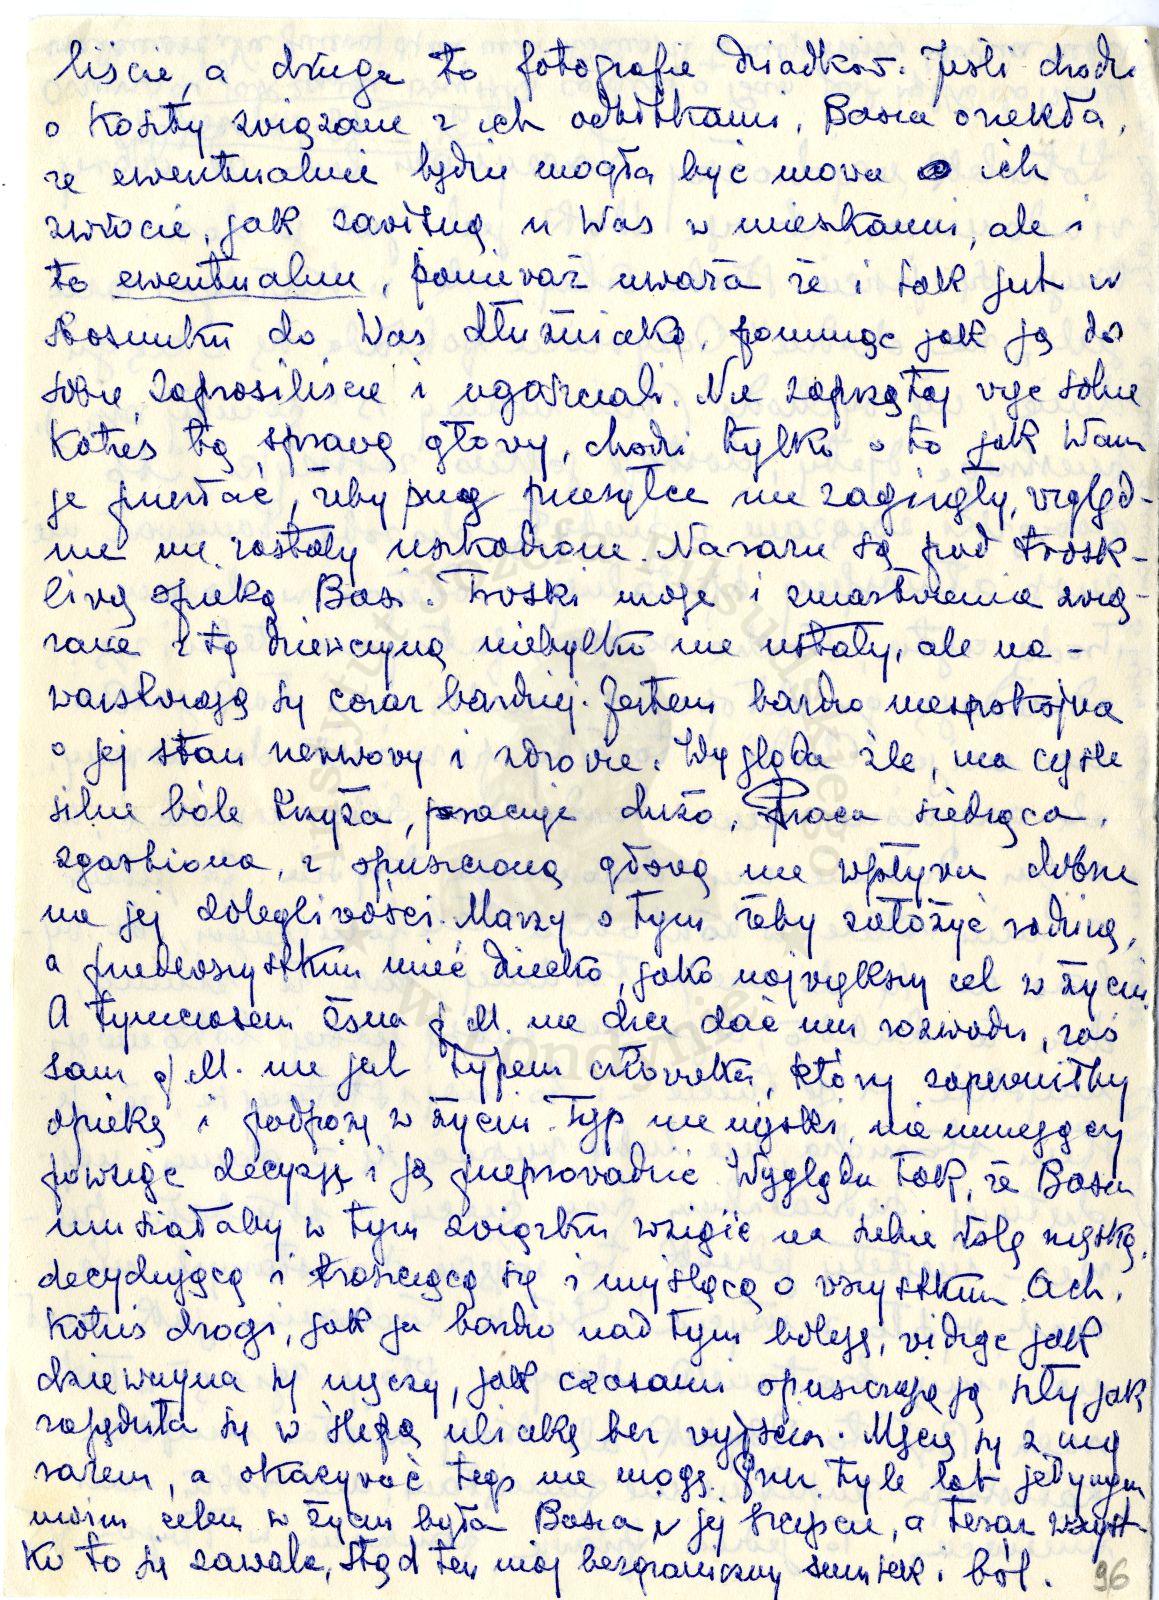 liście, a druga to fotografie dziadków. Jeśli chodzi
o koszty związane z ich odbitkami, Basia orzekła,
że ewentualnie będzie mogła być mowa o ich
zwrocie, jak zawitną u Was w mieszkaniu, ale i
to ewentualnie, ponieważ uważa że i tak jest w
stosunku do Was dłużniczką, pomnąc jak ją do
siebie zaprosiliście i ugaszczali. Nie zaprzątaj więc sobie
Kotuś tą sprawą głowy, chodzi tylko o to jak Wam
je przesłać, żeby przy przesyłce nie zaginęły, względ-
nie nie zostały uszkodzone. Narazie są pod trosk-
liwą opieką Basi. Troski moje i zmartwienia zwią-
zane z tą dziewczyną nietylko nie ustały, ale na-
warstwiają się coraz bardziej. Jestem bardzo niespokojna
o jej stan nerwowy i zdrowie. Wygląda źle, ma ciągle
silne bóle krzyża, pracuje dużo, Praca siedząca,
zgarbiona, z opuszczoną głową nie wpływa dobrze
na jej dolegliwości. Marzy o tym żeby założyć rodzinę,
a przedewszystkim mieć dziecko, jako największy cel w życiu.
A tymczasem żona p. M. nie chce dać mu rozwodu, zaś
sam p. M. nie jest typem człowieka, który zapewniłby
opiekę i podporę w życiu. Typ nie męski, nie umiejący
powziąć decyzję i ją przeprowadzić. Wygląda tak, że Basia
musiałaby w tym związku wziąść na siebie rolę męską,
decydującą i troszczącą się i myślącą o wszystkim. Ach,
Kotuś drogi, jak ja bardzo nad tym boleję, widząc jak
dziewczyna się męczy, jak czasami opuszczają ją siły jak
zapędziła się w ślepą uliczkę bez wyjścia. Męczę się z nią
razem, a okazywać tego nie mogę. Przez tyle lat jedynym
moim celem w życiu była Basia, jej szczęście, a teraz wszyst-
ko to się zawala, stąd ten mój bezgraniczny smutek i ból.
96
Instytut Józefa Piłsudskiego
w Londynie